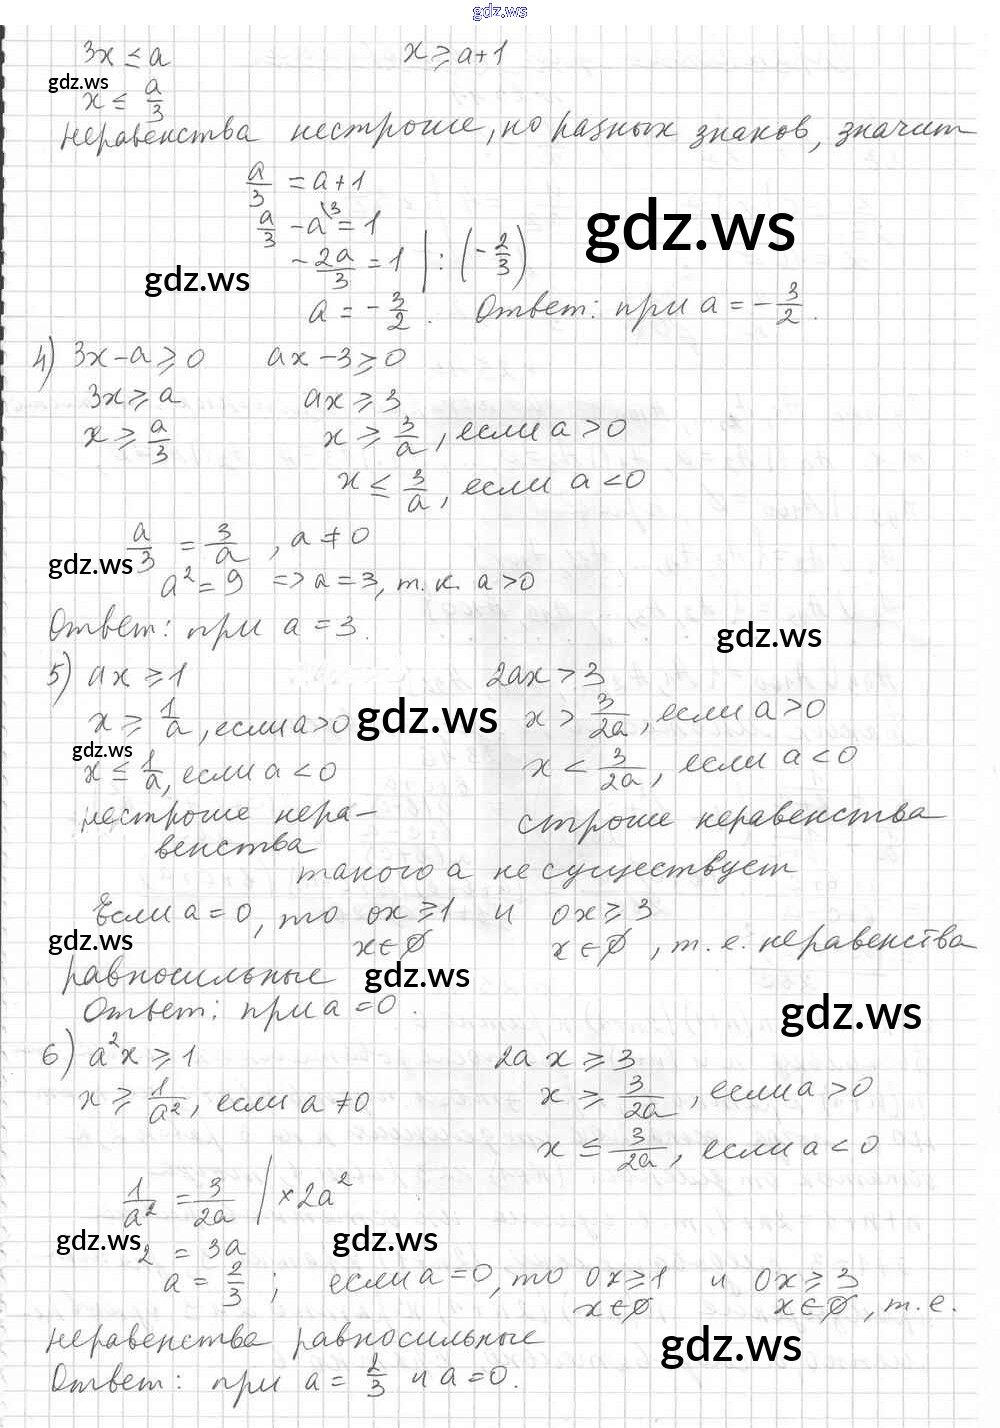 gdz.ws
3x ≤ a    x ≥ a+1
gdz.ws
x ≤ a/3
неравенства нестрогие, но разных знаков, значит
a/3 = a+1
a/3 - a^\3 = 1
gdz.ws
gdz.ws
-2a/3 = 1 | : (-2/3)
a = -3/2. Ответ: при a = -3/2.
4) 3x-a ≥ 0    ax-3 ≥ 0
3x ≥ a    ax ≥ 3
x ≥ a/3    x ≥ 3/a, если a > 0
x ≤ 3/a, если a < 0
a/3 = 3/a, a ≠ 0
gdz.ws
a² = 9 => a = 3, т.к. a > 0
Ответ: при a = 3.
gdz.ws
5) ax ≥ 1    2ax > 3
x ≥ 1/a, если a > 0    x > 3/2a, если a > 0
gdz.ws
gdz.ws
x ≤ 1/a, если a < 0    x < 3/2a, если a < 0
нестрогие нера-    строгие неравенства
венства
такого a не существует
Если a = 0, то 0x ≥ 1 и 0x ≥ 3
gdz.ws
x∈∅    x∈∅, т.е. неравенства
равносильные
gdz.ws
Ответ: при a = 0.
gdz.ws
6) a²x ≥ 1    2ax ≥ 3
x ≥ 1/a², если a ≠ 0    x ≥ 3/2a, если a > 0
x ≤ 3/2a, если a < 0
1/a² = 3/2a | ×2a²
gdz.ws
gdz.ws
2 = 3a
a = 2/3; если a = 0, то 0x ≥ 1 и 0x ≥ 3
x∈∅    x∈∅, т.е.
неравенства равносильные
gdz.ws
Ответ: при a = 2/3 и a = 0.